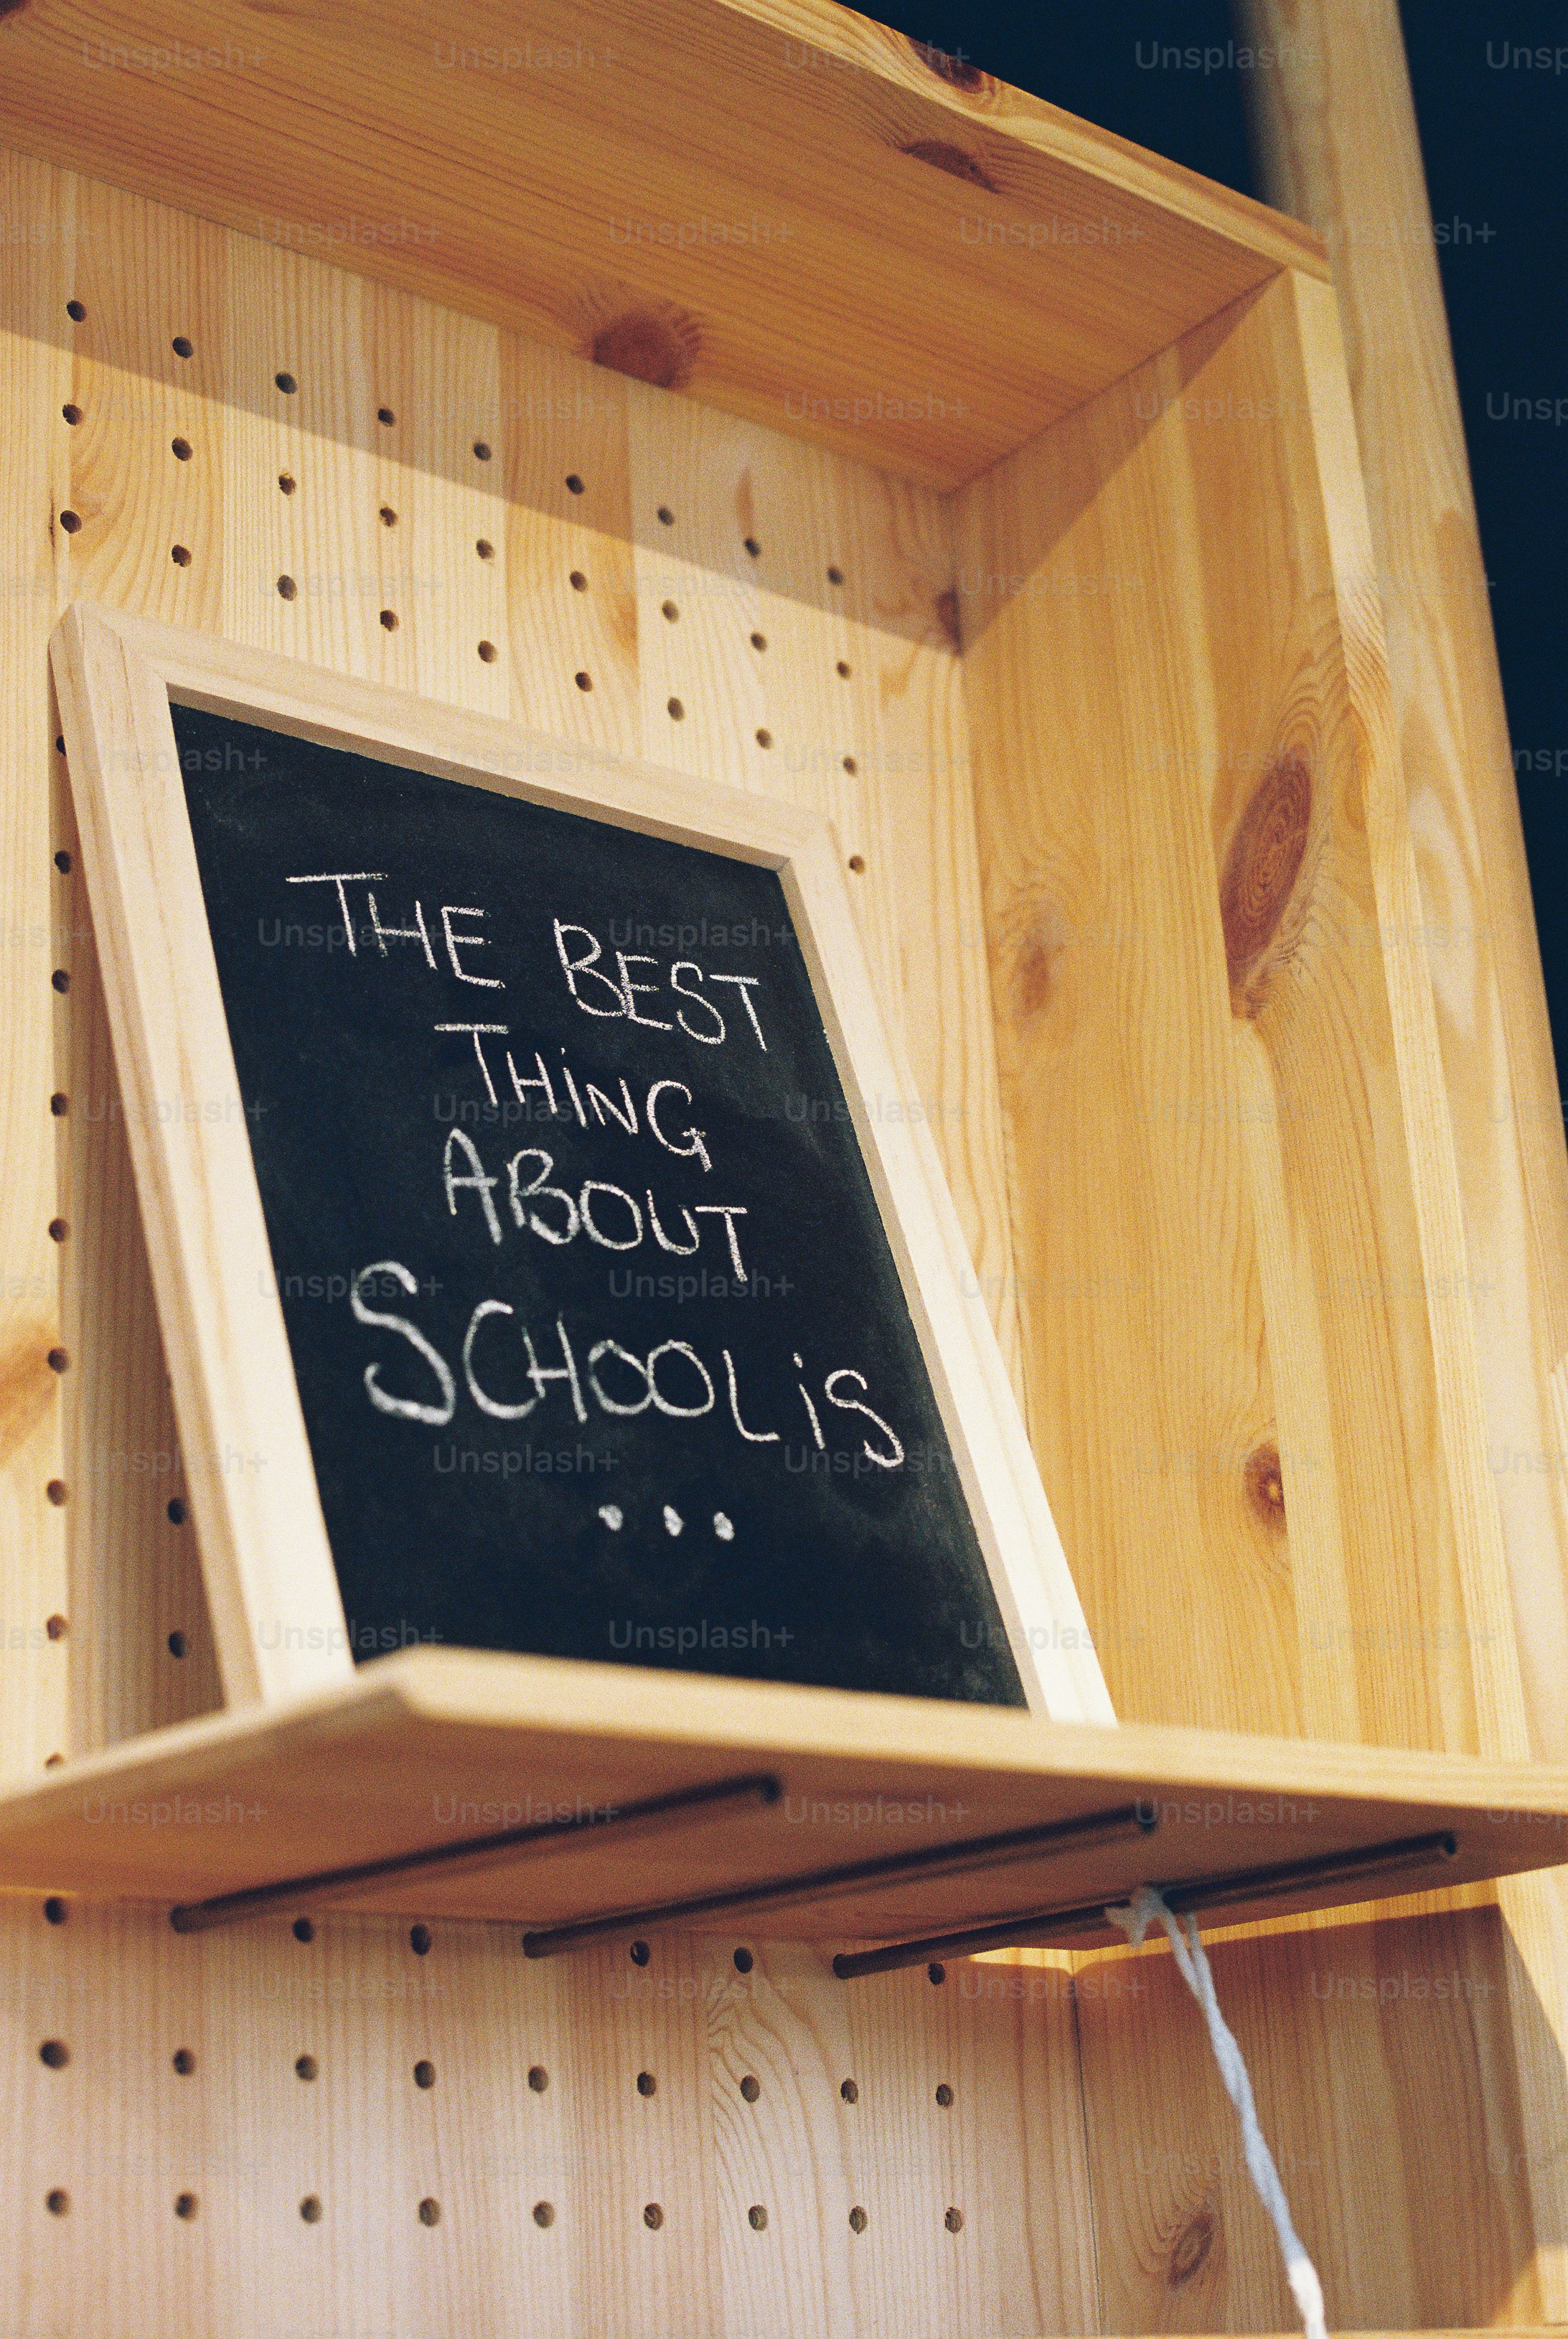 THE BEST
THiNG
ABOUT
SCHOOL iS
...
Unsplash+